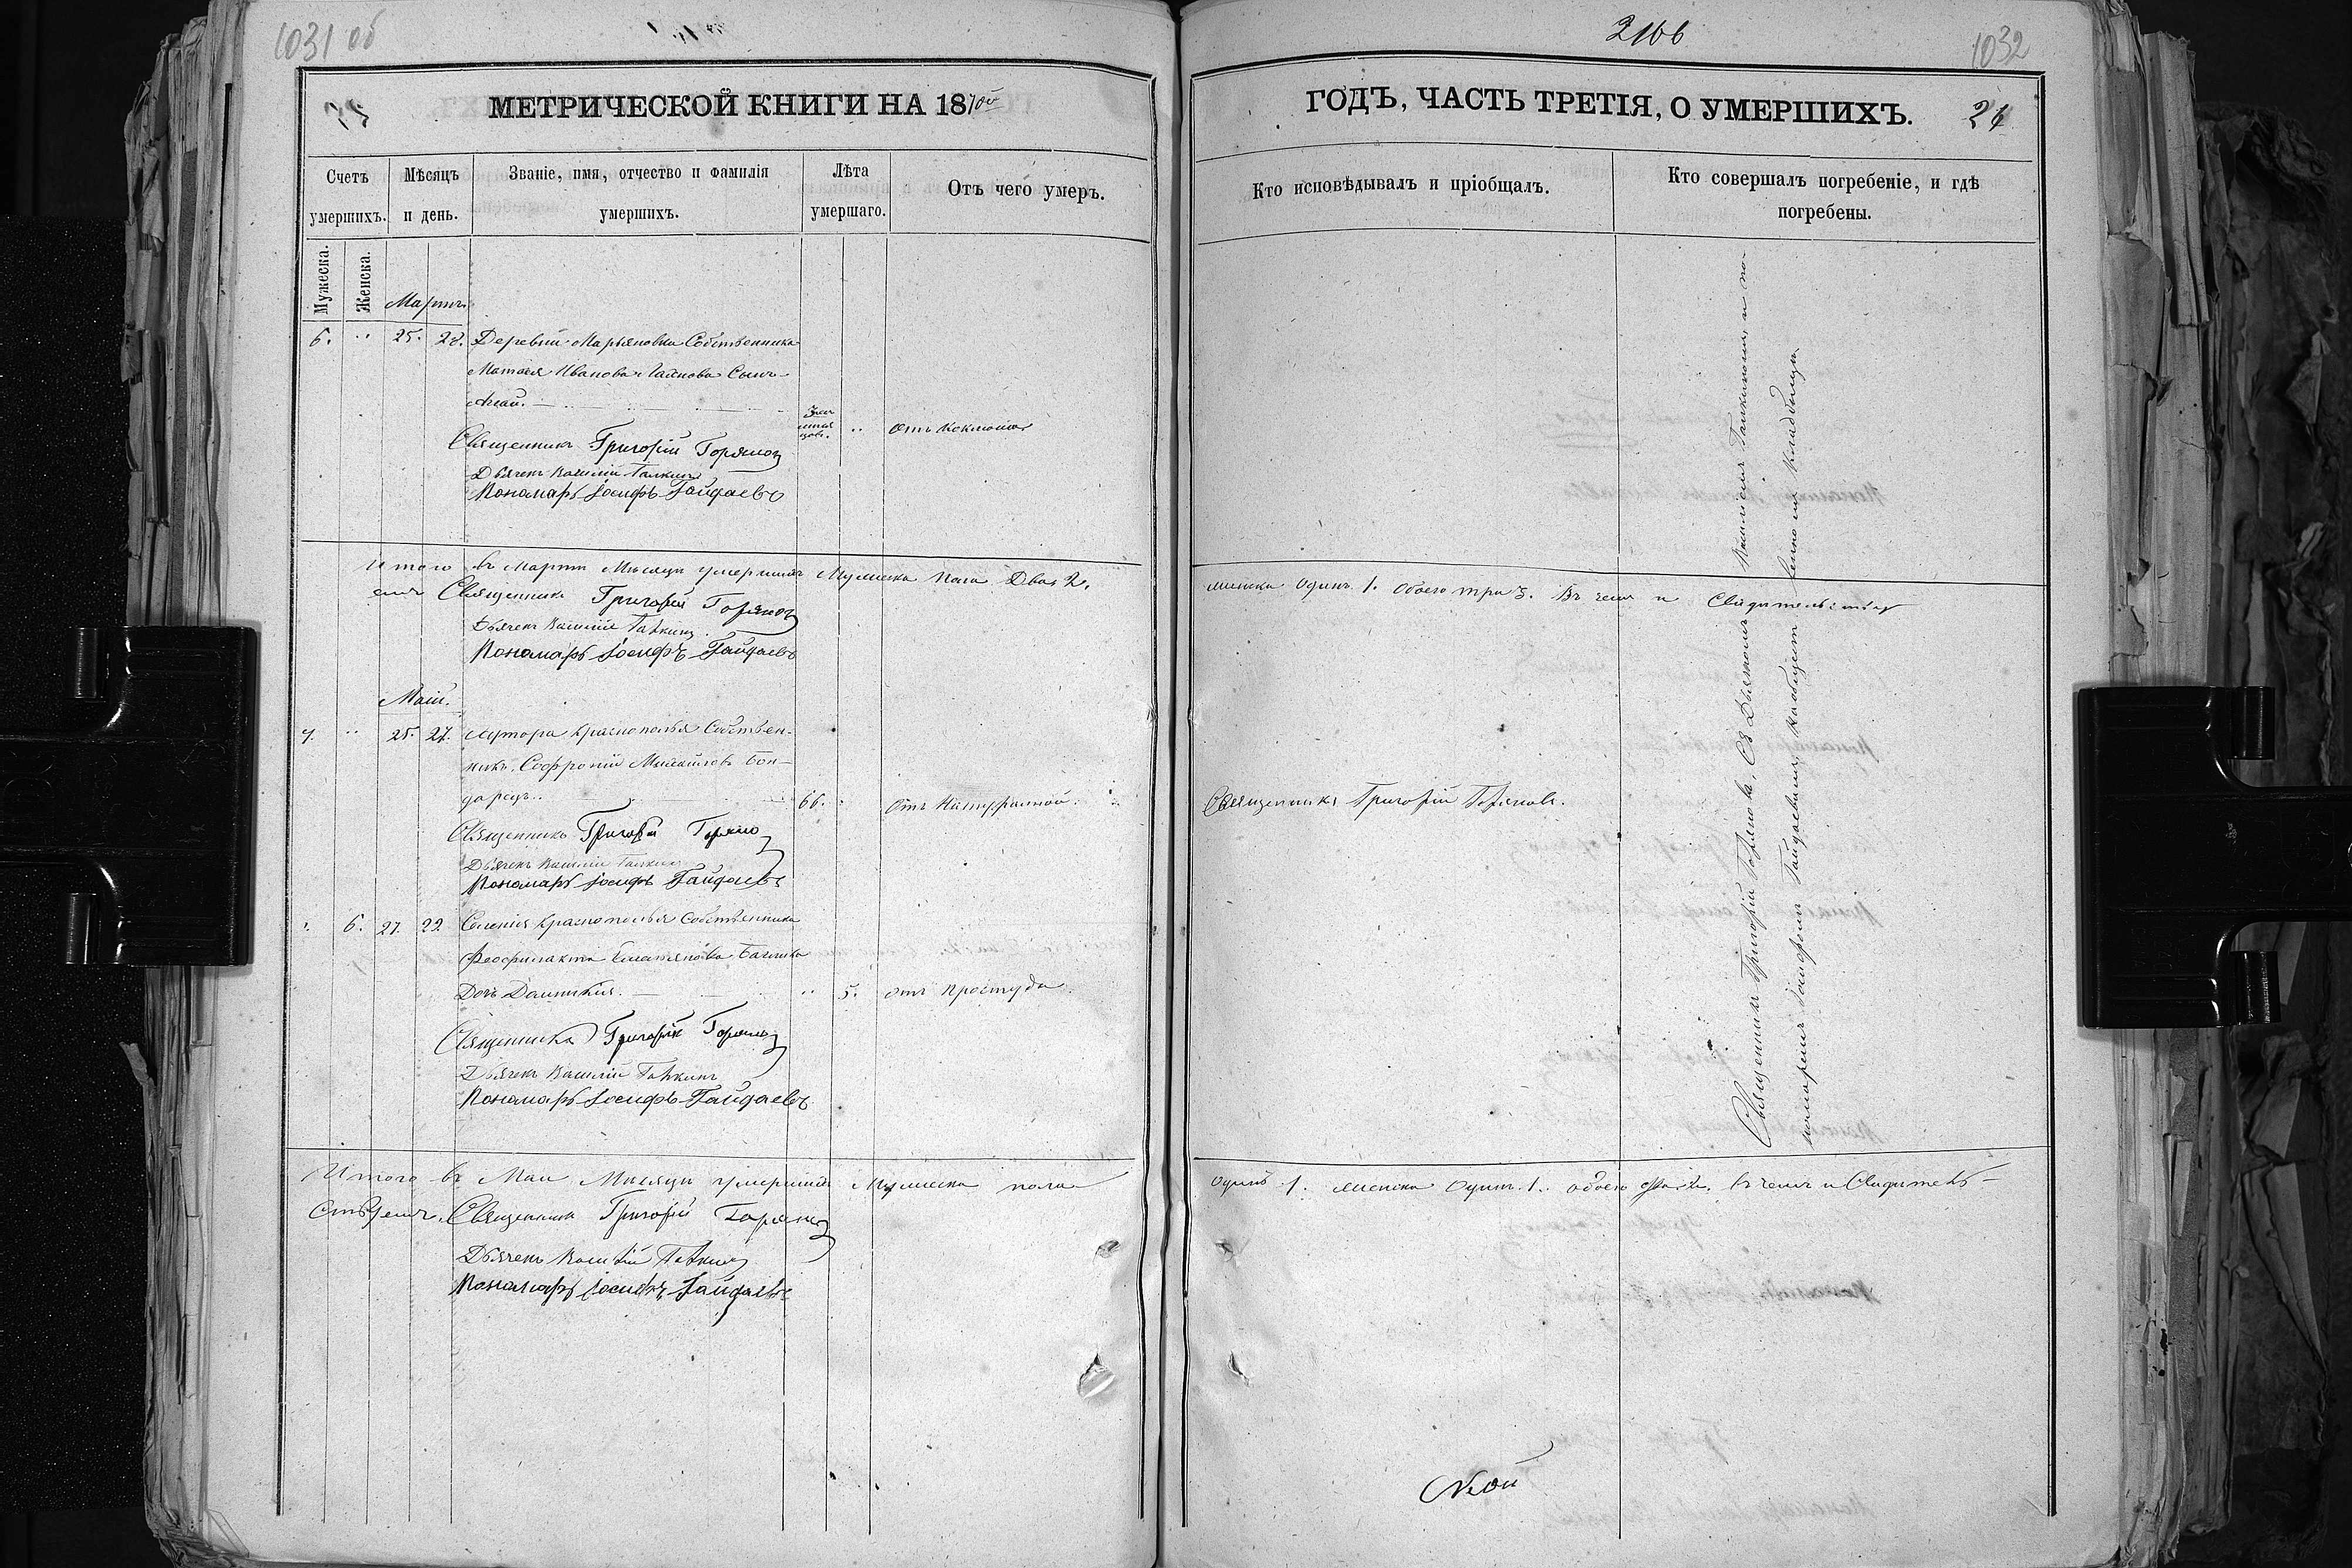 1031 об
МЕТРИЧЕСКОЙ КНИГИ НА 1870й
Счетъ умершихъ.
Мѣсяцъ и день.
Званіе, имя, отчество и фамилія умершихъ.
Лѣта умершаго.
Отъ чего умеръ.
Мужеска.
Женска.
Мартъ
6. " 25. 28. Деревни Марьяновки Собственника
Матвея Иванова Сынъ
Священникъ Григорій Горяновъ
Отъ Коклюша
Дьячекъ Василій Галкинъ
Пономарь Іосифъ Гайдаевъ
Итого въ Мартѣ Мѣсяцѣ умершихъ Мужеска Пола Два 2,
емъ Священникъ Григорій Горяновъ
Дьячекъ Василій Галкинъ
Пономарь Іосифъ Гайдаевъ
Маій.
7. " 25. 27. Хутора Краснополья Собствен-
никъ Софроній Михайловъ Бон-
дарецъ. 66. Отъ Натуральной.
Священникъ Григорій Горяновъ
Дьячекъ Василій Галкинъ
Пономарь Іосифъ Гайдаевъ
6. 27. 29 Селенія Краснополья Собственника
Феофилакта
Дочь Домникія. 5. Отъ Простуды
Священникъ Григорій Горяновъ
Дьячекъ Василій Галкинъ
Пономарь Іосифъ Гайдаевъ
Итого въ Маи Мѣсяцѣ умершихъ Мужеска пола
Ствуемъ. Священникъ Григорій Горяновъ
Дьячекъ Василій Галкинъ
Пономарь Іосифъ Гайдаевъ
2166
1032
ГОДЪ, ЧАСТЬ ТРЕТІЯ, О УМЕРШИХЪ. 24
Кто исповѣдывалъ и пріобщалъ.
Кто совершалъ погребеніе, и гдѣ погребены.
женска Одинъ 1. Обоего три 3. Въ чемъ и Свидѣтельству
Священникъ Григорій Горяновъ.
Священникъ Григорій Горяновъ, Съ Дьячкомъ Василіемъ Галкинымъ и по-
номаремъ Іосифомъ Гайдаевымъ, на общемъ кладбищѣ
Одинъ 1. женска Одинъ 1. обоего два 2. Въ чемъ и Свидѣтель-